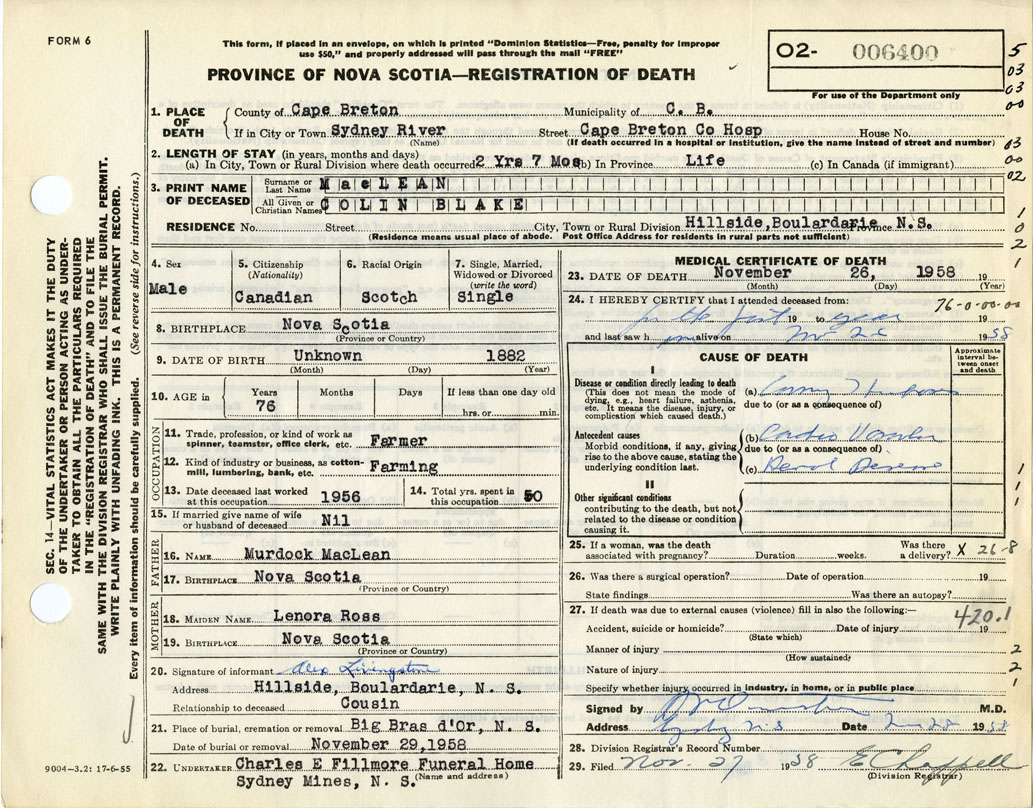 FORM 6
This form, if placed in an envelope, on which is printed "Dominion Statistics—Free, penalty for improper
use $50," and properly addressed will pass through the mail "FREE"
PROVINCE OF NOVA SCOTIA—REGISTRATION OF DEATH
O2- 006400
For use of the Department only
5
03
03
00
03
00
02
1
0
2
1
1. PLACE OF DEATH
County of Cape Breton Municipality of C. B.
If in City or Town Sydney River Street Cape Breton Co Hosp House No.
(Name) (If death occurred in a hospital or institution, give the name instead of street and number)
2. LENGTH OF STAY (in years, months and days)
(a) In City, Town or Rural Division where death occurred 2 Yrs 7 Mos (b) In Province Life (c) In Canada (if immigrant)
3. PRINT NAME OF DECEASED
Surname or Last Name MacLEAN
All Given or Christian Names COLIN BLAKE
RESIDENCE No. Street City, Town or Rural Division Hillside, Boulardarie, N.S. Province
(Residence means usual place of abode. Post Office Address for residents in rural parts not sufficient)
4. Sex
Male
5. Citizenship
(Nationality)
Canadian
6. Racial Origin
Scotch
7. Single, Married,
Widowed or Divorced
(write the word)
Single
8. BIRTHPLACE Nova Scotia
(Province or Country)
9. DATE OF BIRTH Unknown 1882
(Month) (Day) (Year)
10. AGE in Years 76 Months Days If less than one day old
hrs. or min.
OCCUPATION
11. Trade, profession, or kind of work as
spinner, teamster, office clerk, etc. Farmer
12. Kind of industry or business, as cotton-
mill, lumbering, bank, etc. Farming
13. Date deceased last worked
at this occupation 1956
14. Total yrs. spent in
this occupation 50
15. If married give name of wife
or husband of deceased Nil
FATHER
16. NAME Murdock MacLean
17. BIRTHPLACE Nova Scotia
(Province or Country)
MOTHER
18. MAIDEN NAME Lenora Ross
19. BIRTHPLACE Nova Scotia
(Province or Country)
20. Signature of informant Alex Livingstone
Address Hillside, Boulardarie, N. S.
Relationship to deceased Cousin
21. Place of burial, cremation or removal Big Bras d'Or, N. S.
Date of burial or removal November 29,1958
22. UNDERTAKER Charles E Fillmore Funeral Home
Sydney Mines, N. S. (Name and address)
MEDICAL CERTIFICATE OF DEATH
23. DATE OF DEATH November 26, 1958 19
(Month) (Day) (Year)
24. I HEREBY CERTIFY that I attended deceased from: 76-0-00-00
19 to 19
and last saw h im alive on 1958
CAUSE OF DEATH
Approximate interval between onset and death
I
Disease or condition directly leading to death
(This does not mean the mode of
dying, e.g., heart failure, asthenia,
etc. It means the disease, injury, or
complication which caused death.)
(a)
due to (or as a consequence of)
Antecedent causes
Morbid conditions, if any, giving
rise to the above cause, stating the
underlying condition last.
(b)
due to (or as a consequence of)
(c)
II
Other significant conditions
contributing to the death, but not
related to the disease or condition
causing it.
1
1
1
25. If a woman, was the death
associated with pregnancy? Duration weeks. Was there
a delivery? X 26-8
26. Was there a surgical operation? Date of operation 19
State findings Was there an autopsy?
27. If death was due to external causes (violence) fill in also the following:—
420.1
Accident, suicide or homicide? Date of injury 19
(State which)
Manner of injury 2
(How sustained)
Nature of injury 2
Specify whether injury occurred in industry, in home, or in public place 1
Signed by M.D.
Address Sydney N.S Date 1958
28. Division Registrar's Record Number
29. Filed Nov. 27 1958 E Chappell
(Division Registrar)
SEC. 14—VITAL STATISTICS ACT MAKES IT THE DUTY
OF THE UNDERTAKER OR PERSON ACTING AS UNDER-
TAKER TO OBTAIN ALL THE PARTICULARS REQUIRED
IN THE "REGISTRATION OF DEATH" AND TO FILE THE
SAME WITH THE DIVISION REGISTRAR WHO SHALL ISSUE THE BURIAL PERMIT.
WRITE PLAINLY WITH UNFADING INK. THIS IS A PERMANENT RECORD.
Every item of information should be carefully supplied. (See reverse side for instructions.)
9004-3.2: 17-6-55